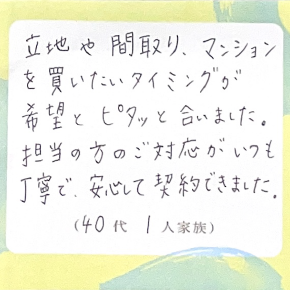 立地や間取り、マンション
を買いたいタイミングが
希望とピタッと合いました。
担当の方のご対応がいつも
丁寧で、安心して契約できました。
(40代 1人家族)